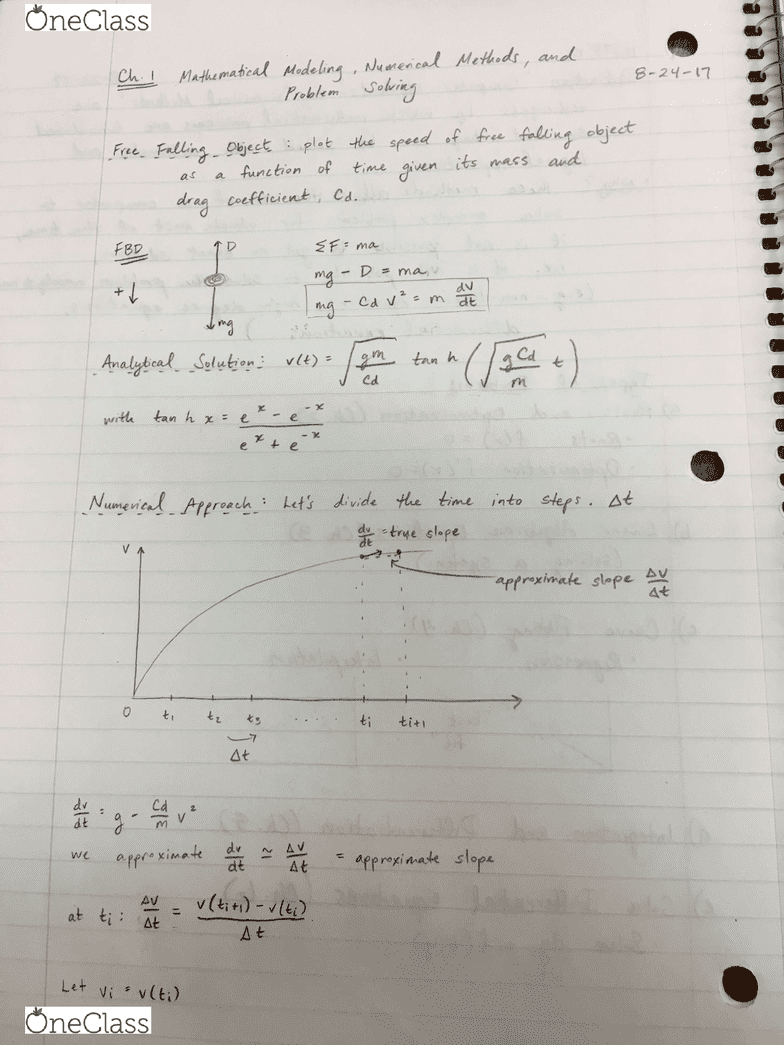 OneClass
Ch. 1 Mathematical Modeling, Numerical Methods, and
Problem Solving
8-24-17
Free Falling Object : plot the speed of free falling object
as a function of time given its mass and
drag coefficient, Cd.
FBD
+ ↓
↑ D
↓ mg
ΣF = ma
mg - D = ma
mg - Cd v² = m dv/dt
Analytical Solution: v(t) = √(gm/Cd) tan h (√(gCd/m) t)
with tan h x = (e^x - e^-x)/(e^x + e^-x)
Numerical Approach : Let's divide the time into steps. Δt
dv/dt = true slope
v
approximate slope Δv/Δt
0 t₁ t₂ t₃ ..... ti ti+1
→
Δt
dv/dt = g - Cd/m v²
we approximate dv/dt ≃ Δv/Δt = approximate slope
at ti : Δv/Δt = (v(ti+1) - v(ti))/Δt
Let vi = v(ti)
OneClass